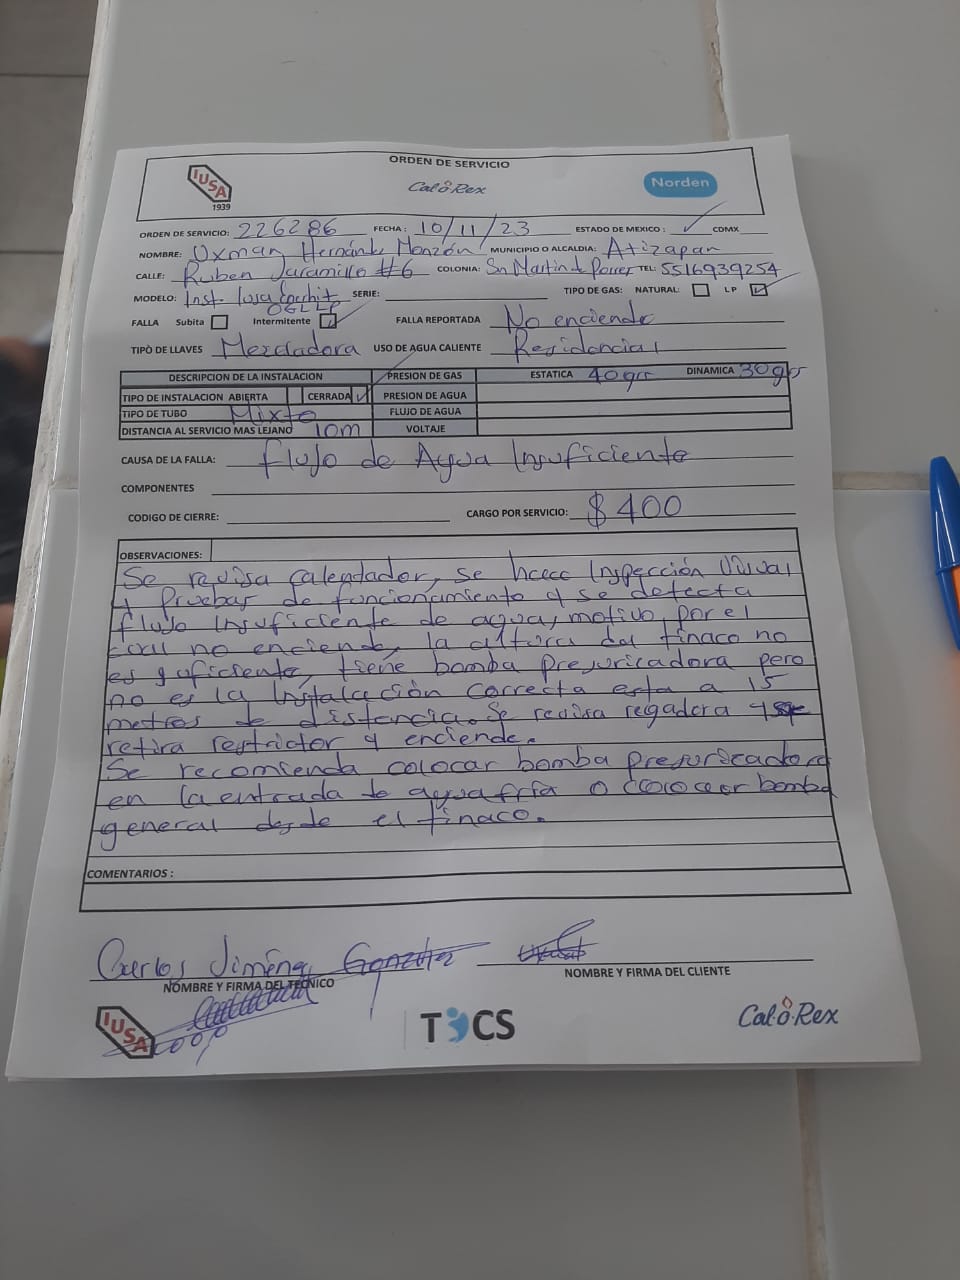 ORDEN DE SERVICIO
IUSA 1939 Cal-o-Rex Norden
ORDEN DE SERVICIO: 226286 FECHA: 10/11/23 ESTADO DE MEXICO: ✓ CDMX
NOMBRE: Uxman Hernánde Monzón MUNICIPIO O ALCALDIA: Atizapan
CALLE: Ruben Jaramillo #6 COLONIA: Sn Martin d Porrer TEL: 5516939254
MODELO: Inst. Iusa SERIE: TIPO DE GAS: NATURAL: LP ✓
FALLA Subita Intermitente ✓ FALLA REPORTADA No enciende
TIPÒ DE LLAVES Mezcladora USO DE AGUA CALIENTE Residencial
DESCRIPCION DE LA INSTALACION PRESION DE GAS ESTATICA 40grs DINAMICA 30grs
TIPO DE INSTALACION ABIERTA CERRADA ✓ PRESION DE AGUA
TIPO DE TUBO Mixto FLUJO DE AGUA
DISTANCIA AL SERVICIO MAS LEJANO 10m VOLTAJE
CAUSA DE LA FALLA: flujo de Agua Insuficiente
COMPONENTES
CODIGO DE CIERRE: CARGO POR SERVICIO: $400
OBSERVACIONES:
Se revisa calentador, se hace Inspección Visual
y Pruebas de funcionamiento y se detecta
flujo insuficiente de agua, motivo por el
cual no enciende, la altura del tinaco no
es suficiente, tiene bomba presurizadora pero
no es la Instalación correcta esta a 15
metros de distancia. Se revisa regadera y se
retira restrictor y enciende.
Se recomienda colocar bomba presurizadora
en la entrada de agua fría o colocar bomba
general desde el tinaco.
COMENTARIOS :
Carlos Jiménez González
NOMBRE Y FIRMA DEL TECNICO NOMBRE Y FIRMA DEL CLIENTE
IUSA TOCS Cal-o-Rex